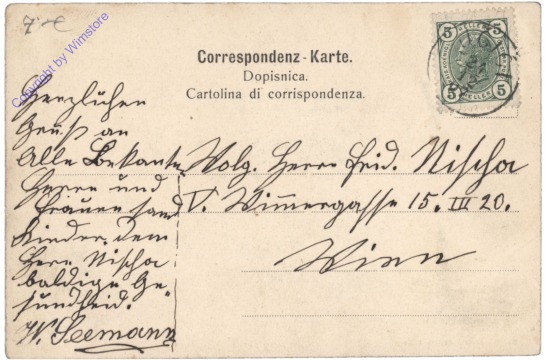 7 €
Copyright by Wimstore
Correspondenz-Karte.
Dopisnica.
Cartolina di corrispondenza.
5 5
HELLER
Herzlichen
Gruß an
Alle Bekante
Herren und
Frauen samt
Kinder, dem
Herr Nischa
baldige Ge-
sundheid.
W. Seemann
Wolg. Herrn Frid. Nischa
V. Wimmergasse 15. III 20.
Wien